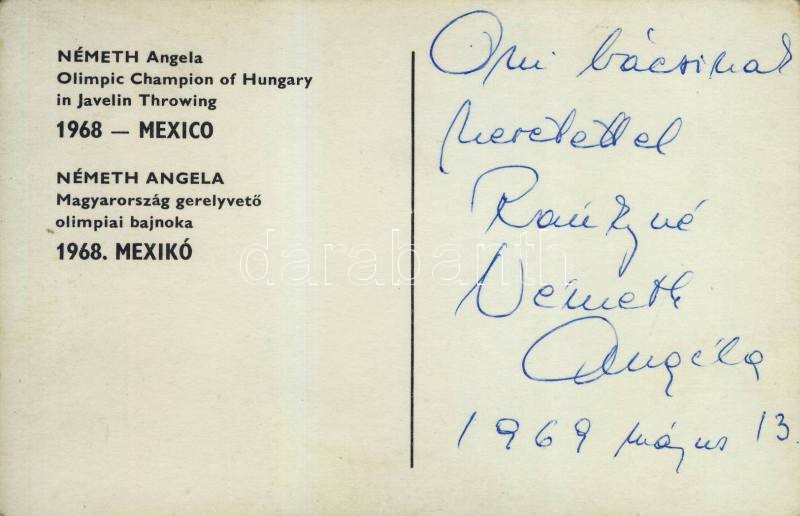 NÉMETH Angela
Olimpic Champion of Hungary
in Javelin Throwing
1968 — MEXICO
NÉMETH ANGELA
Magyarország gerelyvető
olimpiai bajnoka
1968. MEXIKÓ
bácsinak
szeretettel
Ránkyné
Németh
Angéla
1969 május 13.
darabanth